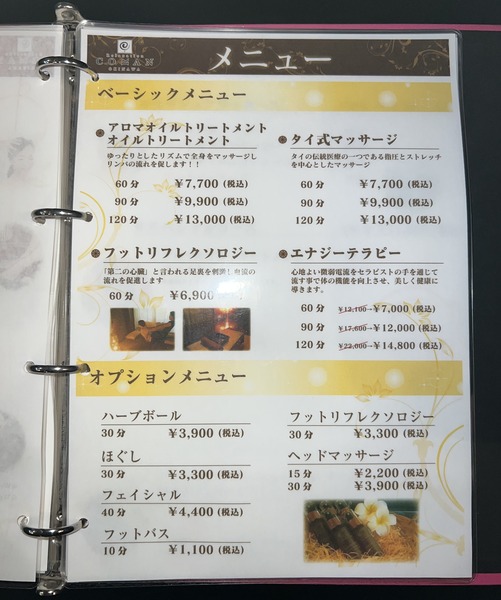 Relaxation
CONAN
OKINAWA
メニュー
ベーシックメニュー
アロマオイルトリートメント
オイルトリートメント
ゆったりとしたリズムで全身をマッサージし
リンパの流れを促します！！
60分 ￥7,700 (税込)
90分 ￥9,900 (税込)
120分 ￥13,000 (税込)
タイ式マッサージ
タイの伝統医療の一つである指圧とストレッチ
を中心としたマッサージ
60分 ￥7,700 (税込)
90分 ￥9,900 (税込)
120分 ￥13,000 (税込)
フットリフレクソロジー
「第二の心臓」と言われる足裏を刺激し血流の
流れを促進します
60分 ￥6,900
エナジーテラピー
心地よい微弱電流をセラピストの手を通じて
流す事で体の機能を向上させ、美しく健康に
導きます。
60分 ￥12,100→￥7,000 (税込)
90分 ￥17,600→￥12,000 (税込)
120分 ￥22,000→￥14,800 (税込)
オプションメニュー
ハーブボール
30分 ￥3,900 (税込)
ほぐし
30分 ￥3,300 (税込)
フェイシャル
40分 ￥4,400 (税込)
フットバス
10分 ￥1,100 (税込)
フットリフレクソロジー
30分 ￥3,300 (税込)
ヘッドマッサージ
15分 ￥2,200 (税込)
30分 ￥3,900 (税込)